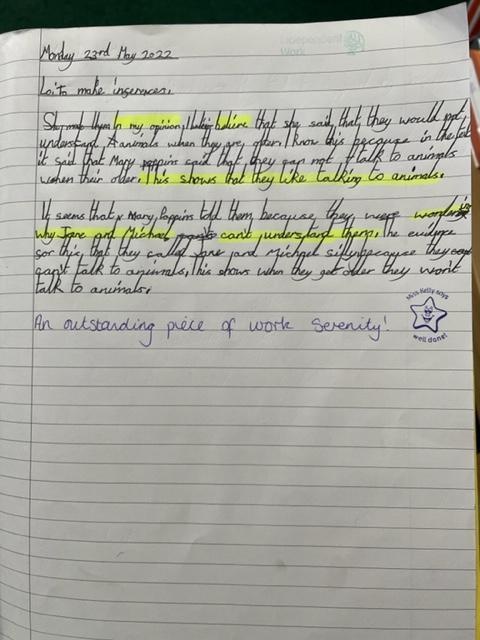 Independent
Work
Monday 23rd May 2022
L.o: To make inserences.
in my opinion, I belive that she said that they would not
understand animals when they are older. I know this because in the text
it said that Mary poppins said that they can not talk to animals
when their older. This shows that they like talking to animals.
It seems that Mary Poppins told them because they were wondering
why Jane and Michael can't understand them. The evidence
sor this, that they called Jane and Michael silly because they
can't talk to animals, this shows when they get older they won't
talk to animals.
An outstanding piece of work Serenity!
Miss Kelly says
well done!